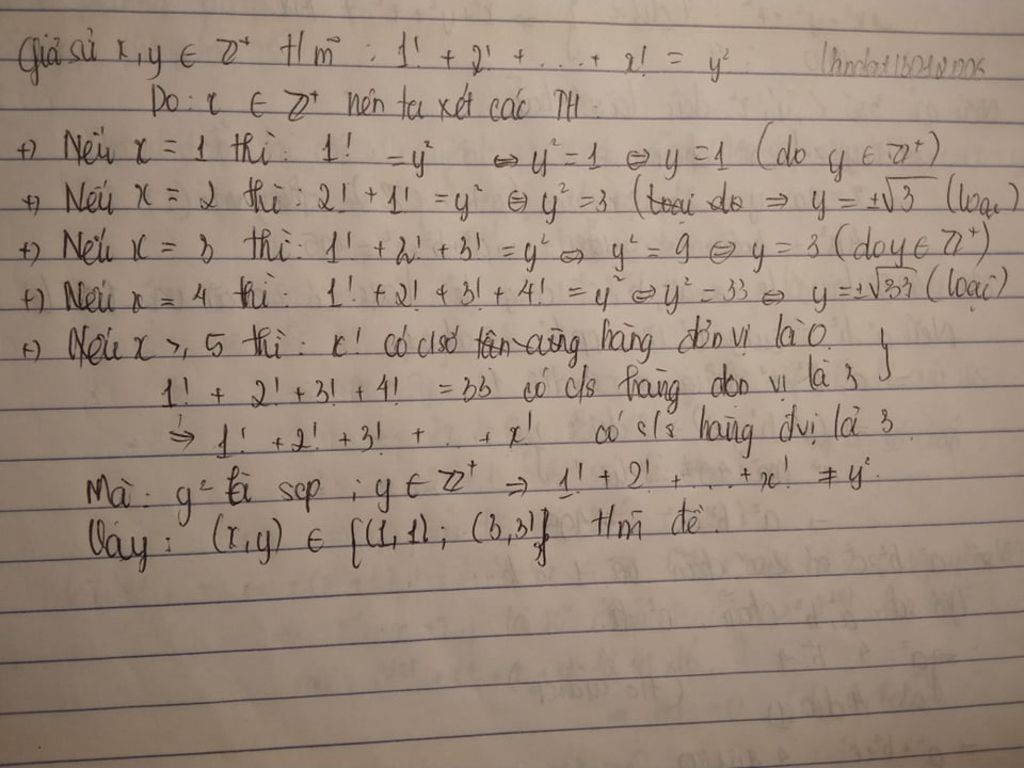 Giả sử x, y ∈ Z⁺ tlmñ : 1! + 2! + ... + x! = y²
Do : x ∈ Z⁺ nên ta xét các TH :
+) Nếu x = 1 thì : 1! = y² ⇔ y² = 1 ⇔ y = 1 (do y ∈ Z⁺)
+) Nếu x = 2 thì : 2! + 1! = y² ⇔ y² = 3 (loại do ⇒ y = ±√3 (loại)
+) Nếu x = 3 thì : 1! + 2! + 3! = y² ⇔ y² = 9 ⇔ y = 3 (do y ∈ Z⁺)
+) Nếu x = 4 thì : 1! + 2! + 3! + 4! = y² ⇔ y² = 33 ⇔ y = ±√33 (loại)
+) Nếu x ≥ 5 thì : x! có c/số tận cùng hàng đơn vị là 0 }
1! + 2! + 3! + 4! = 33 có c/s hàng đơn vị là 3
⇒ 1! + 2! + 3! + ... + x! có c/s hàng đvị là 3
Mà : y² là scp ; y ∈ Z⁺ ⇒ 1! + 2! + ... + x! ≠ y².
Vậy : (x,y) ∈ {(1,1) ; (3,3)} tlm đề.